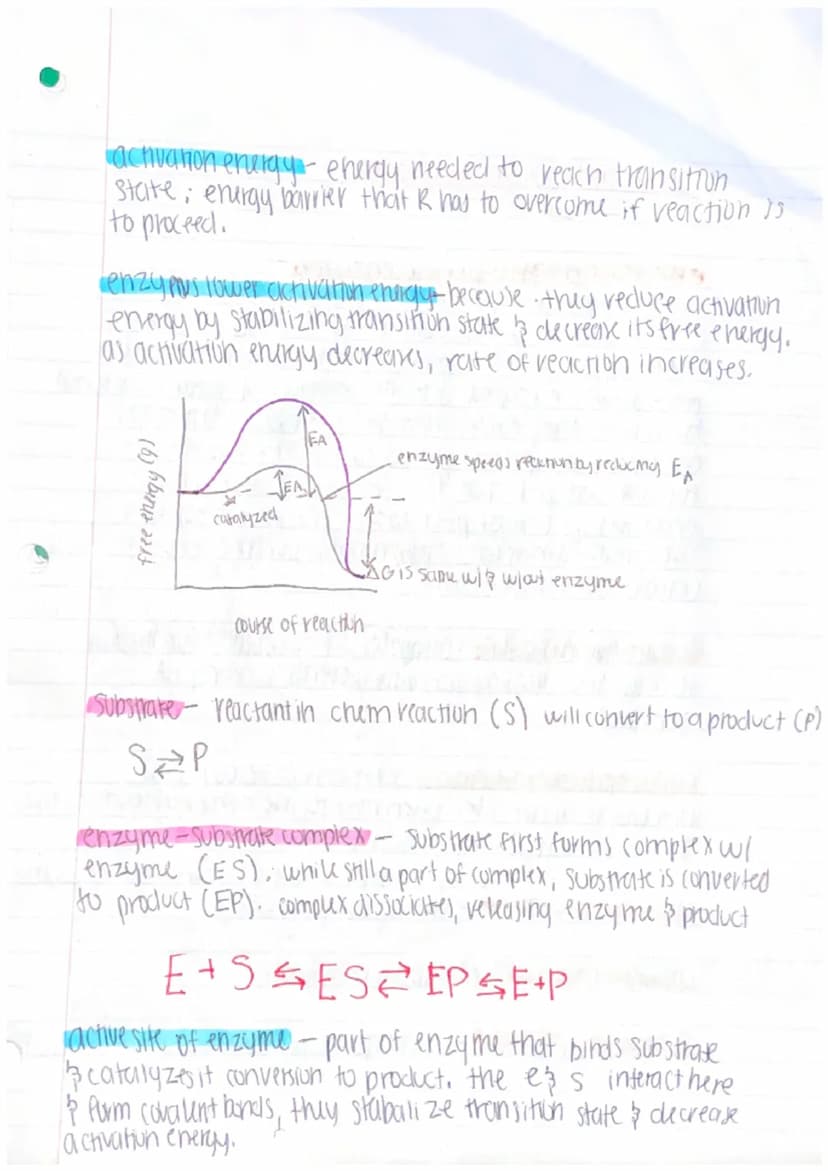 activation energy - energy needed to reach transition
state; energy barrier that R has to overcome if reaction is
to proceed.
enzymes lower activation energy - because they reduce activation
energy by stabilizing transition state & decrease its free energy.
as activation energy decreases, rate of reaction increases.
free energy (g)
EA
EA
catalyzed
enzyme speeds reaction by reducing EA
ΔG is same w/ & w/out enzyme
course of reaction
substrate - reactant in chem reaction (S) will convert to a product (P)
S ⇄ P
enzyme-substrate complex - substrate first forms complex w/
enzyme (ES). while still a part of complex, substrate is converted
to product (EP). complex dissociates, releasing enzyme & product
E + S ⇆ ES ⇄ EP ⇆ E+P
active site of enzyme - part of enzyme that binds substrate
& catalyzes it conversion to product. the e & s interact here
& form covalent bonds, they stabalize transition state & decrease
activation energy.